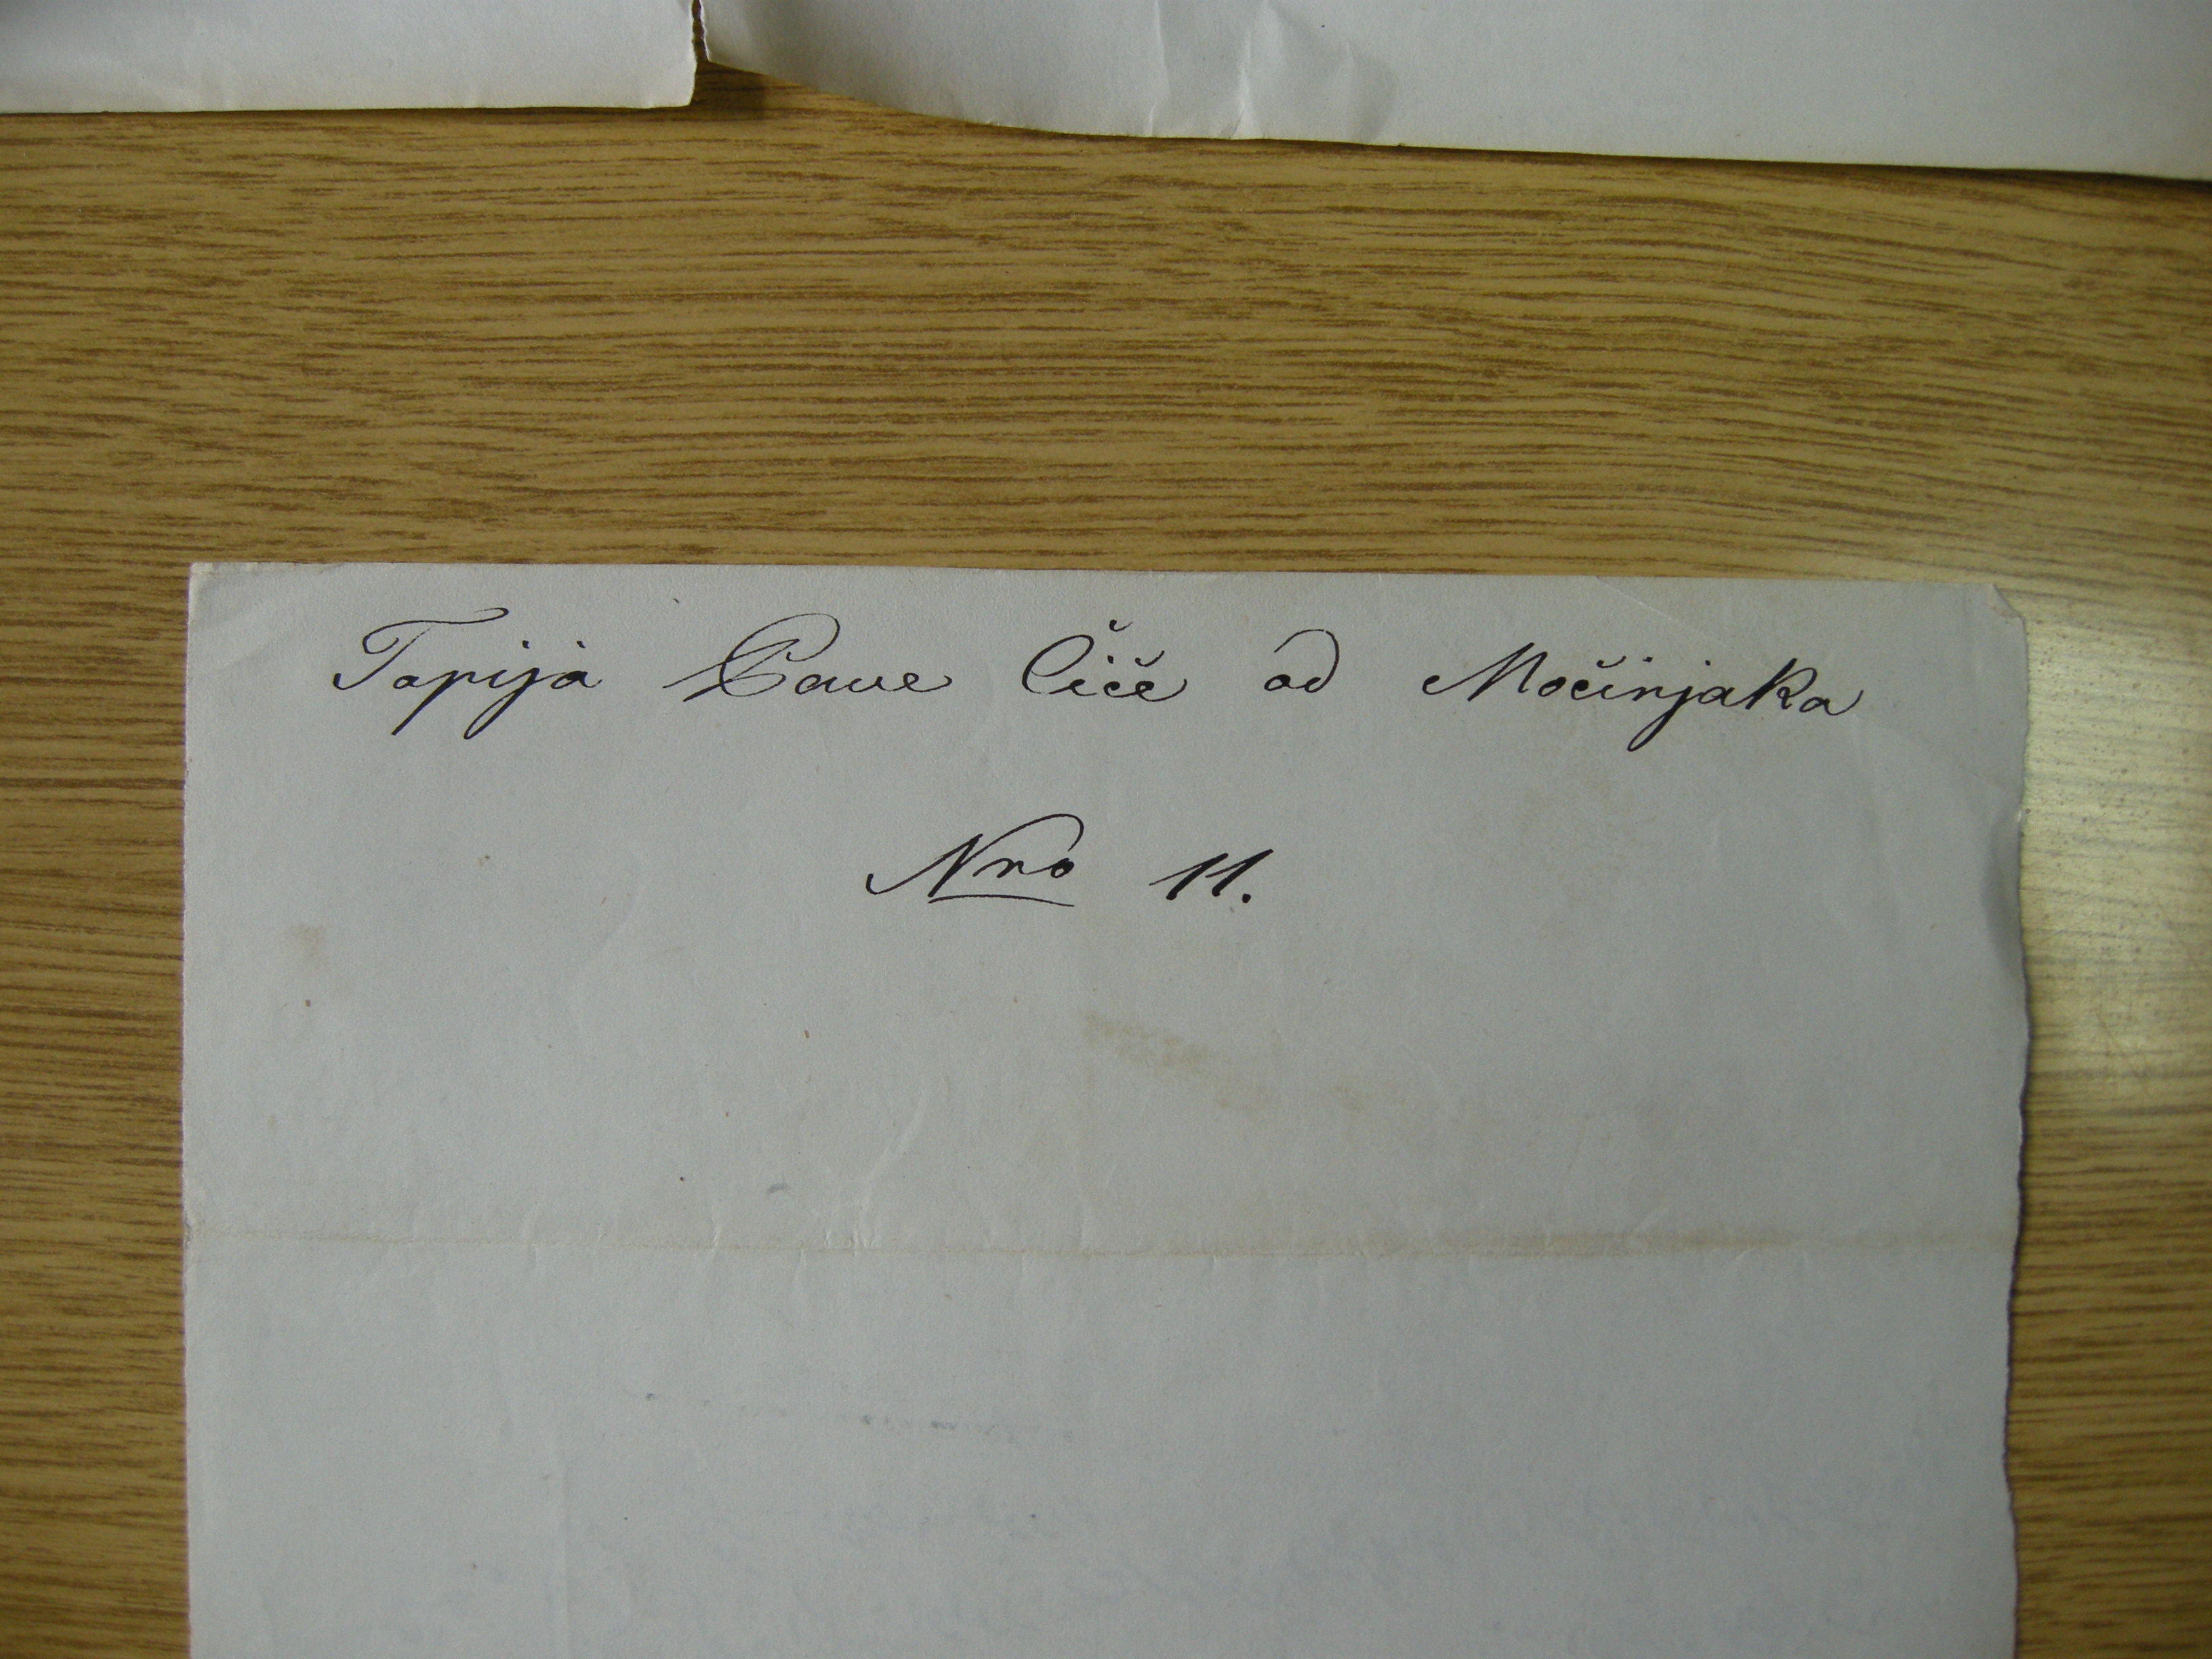 Tapija Pave Čiče od Močinjaka
Nro 11.